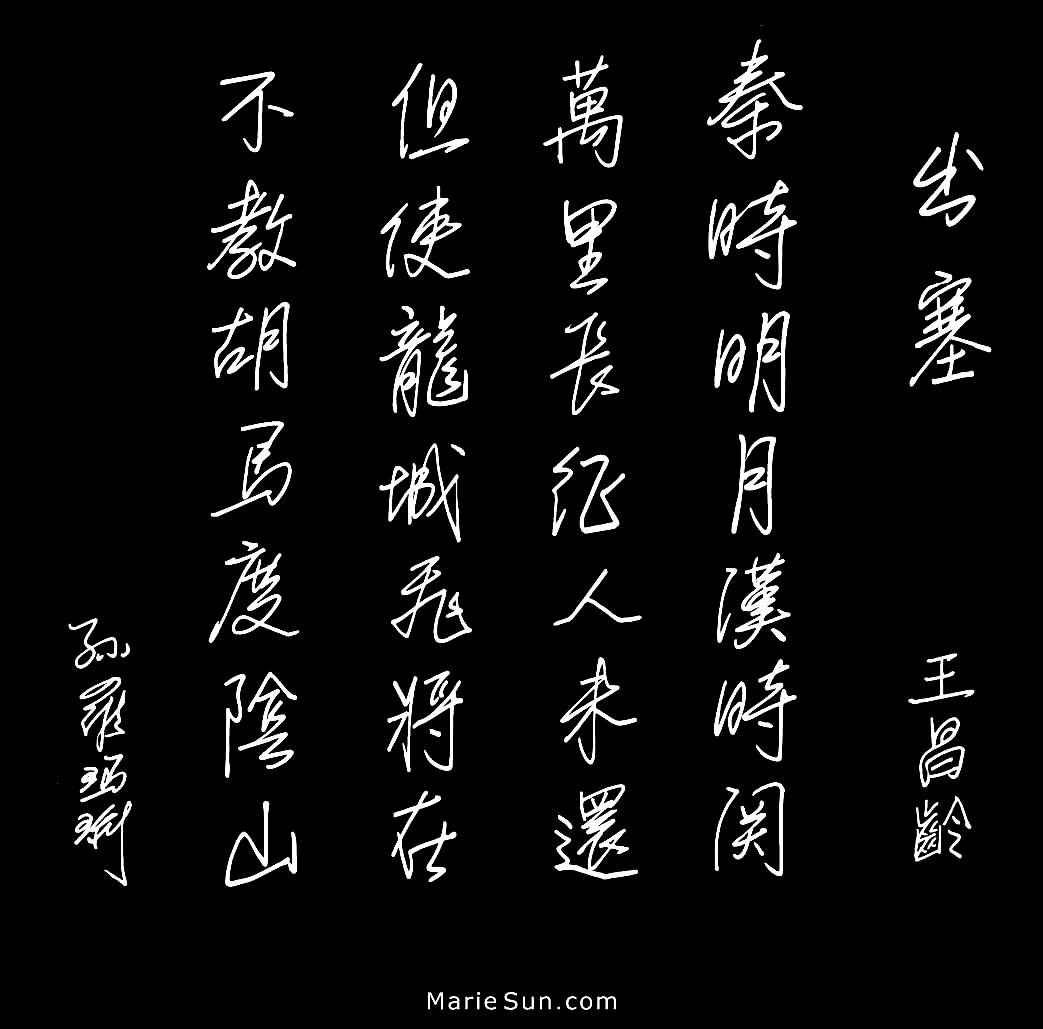 出塞 王昌齡
秦時明月漢時関
萬里長征人未還
但使龍城飛將在
不教胡馬度陰山
孫羅瑪琍
MarieSun.com